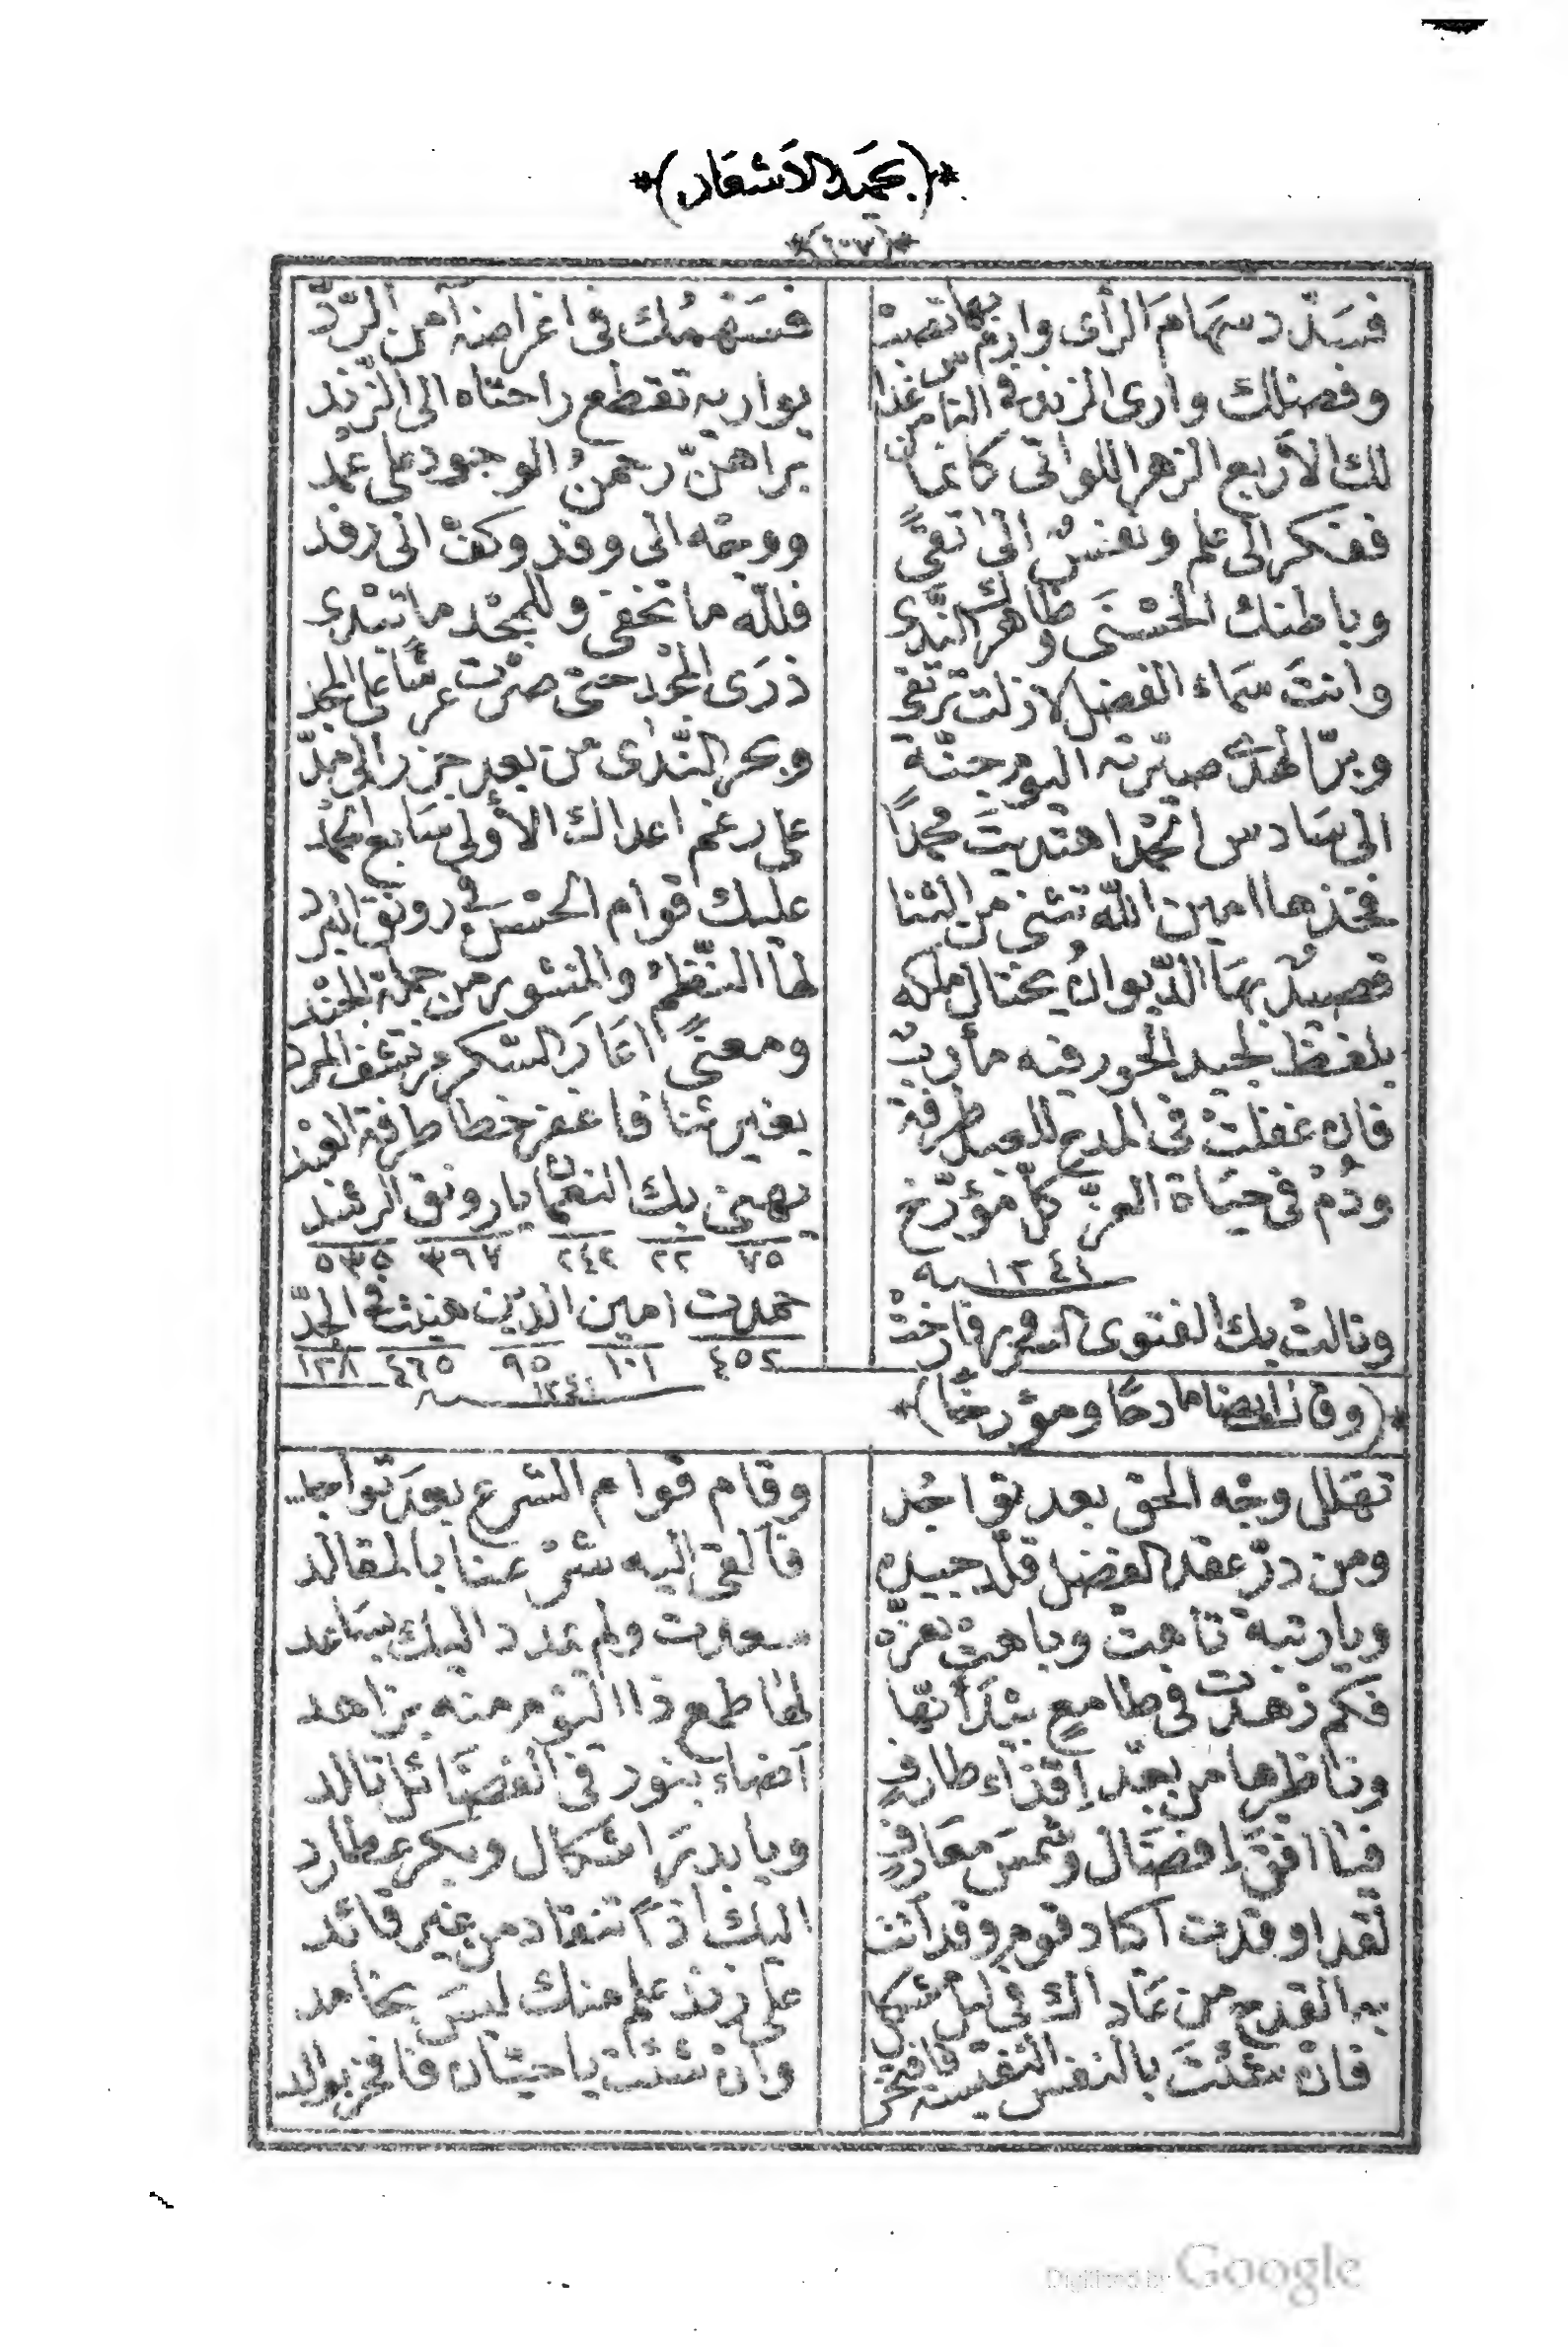 *(بحميد الاشعار)*
*(١٠٧)*
فسدّد سهام الرأى وارم بها تصب فسهمك فى اغراضه آمن الردّ
وفضلك وارى الزند فى الناس من غدا يواريه تقطع راحتاه الى الزند
لك الأربع الزهر اللواتى كأنما براهنّ رحمنُ الوجود على عمد
ففكر الى علم ونفسٌ الى تقىً ووجه الى وفد وكفّ الى رفد
وباطنك الحسنى وظاهرك الندى فللّه ما تخفى وللمجد ما تبدى
وانتَ سماء الفضل لا زلت ترتقى ذرَى المجد حتى صرت عرشا على المجد
وبرّ الهدى صيّرته اليوم جنّةٍ وبحر النَّدى من بعد جزر الى مدّ
الى سادس اتحمد اهتديتَ محمداً على رغم اعداك الأولى سابع اتحمد
فخذها امين اللّه تثنى من الثنا عليك قوام الحسن فى رونق البرد
قصيدٌ بها الديوان يختال ملكه لها النّظمُ والمنثور من جملة الجند
بلفظ لجيد الحور فيه مأربٌ ومعنىً اعَارَ السّكر مرتشف المرد
فان غفلتْ فى المدح للعبد طرفة بغير ثنا فاغفر خطا طرفة العبد
ودُمْ فى حيَاة العزّ كلّ مؤرّخ يهنى بك النعمان يا رونق الرشد
١٢٤١ سنه ٧٥ ٢٢ ٢٤٢ ٣٩٧ ٥٣٥
ونالت بك الفتوى الفخر فارختْ حمدت امين الدين هنيت فى الجدّ
٤٥٢ ١٠١ ٩٥ ٤٦٥ ١٣٨
١٢٤١ سنه
*(وقال ايضا مادحًا ومؤرخًا)*
تهلل وجه الحق بعد تواجُد وقام قوام الشرع بعدَ تواجد
ومن درّ عقد الفضل قلّد جيده فألقى اليه شرْعنا بالمقالد
ويا رتبة تاهت وباهتْ بعزّه سعدت ولم تمدد اليك بساعد
فكم زهدت فى طامعٍ بيْدَ أنّها لها طمع ذا اليوم منه بزاهد
وناظرها من بعد إقذاء طارفٍ أضاء بنور فى الفضائل تالد
فيا افق إفضال وشمسَ معارفٍ ويا بدرَ اشكال وبكر عطارد
لقد اوقدت آكاد قوم وقد أتت اليك اذًا تنقاد من غير قائد
يد القدح من عاداك فى ليل مشكل على زند علم منك ليس بخامد
فانْ شئتَ بالنفس النفيسة فافتخر وانْ شئتَ يا حسّان فافخر بوالد
Digitized by Google